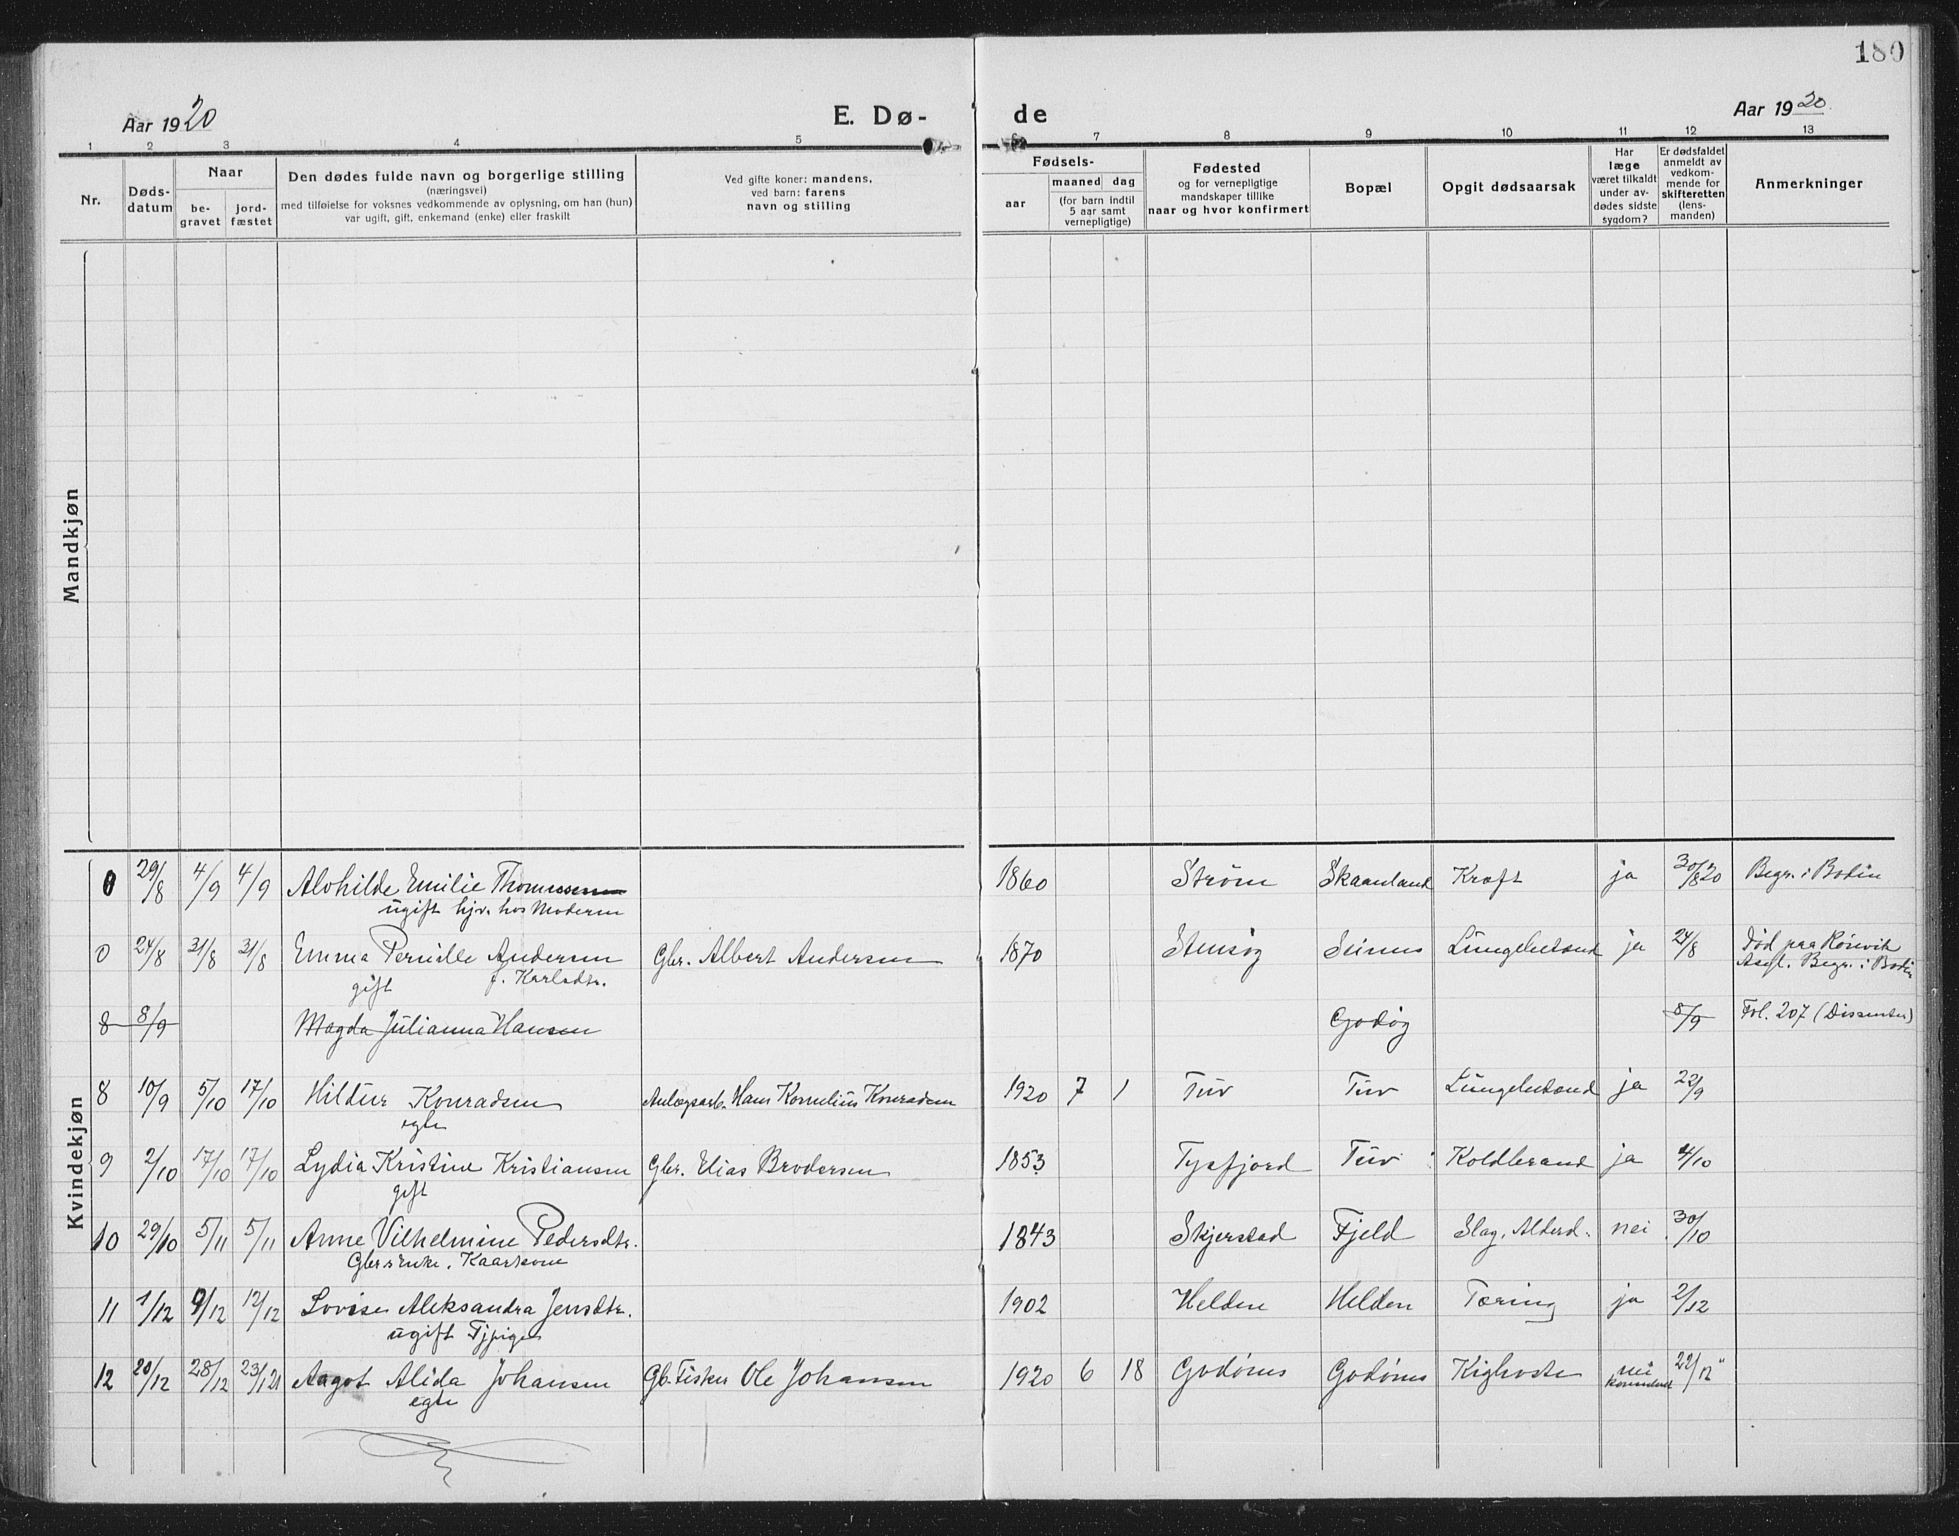 180
Aar 1920 E. Dø- de Aar 1920
1 2 3 4 5 6 7 8 9 10 11 12 13
Nr.
Døds-
datum
Naar
be-
gravet
jord-
fæstet
Den dødes fulde navn og borgerlige stilling
(næringsvei)
med tilføielse for voksnes vedkommende av oplysning, om han (hun)
var ugift, gift, enkemand (enke) eller fraskilt
Ved gifte koner: mandens,
ved barn: farens
navn og stilling
Fødsels-
aar
maaned dag
(for barn indtil
5 aar samt
vernepligtige)
Fødested
og for vernepligtige
mandskaper tillike
naar og hvor konfirmert
Bopæl
Opgit dødsaarsak
Har
læge
været tilkaldt
under av-
dødes sidste
sygdom?
Er dødsfaldet
anmeldt av
vedkom-
mende for
skifteretten
(lens-
manden)
Anmerkninger
Mandkjøn
Kvindekjøn
0 29/8 4/9 4/9 Alvhilde Emilie Thomassen 1860 Strøm Skaanland Kræft ja 30/8 20 Begr. i Bodin
ugift hjv. hos Moderen
0 24/8 31/8 31/8 Emma Pernille Andersen Gbr. Albert Andersen 1870 Stensøg Seines Lungebetænd ja 24/8 Død paa Rösvik
gift f. Karlsdtr. Asyl. Begr. i Bodin
8 8/9 Magda Julianna Hansen Godøg 8/9 Fol. 207 (Dissenter)
8 10/9 5/10 17/10 Hildur Konradsen Anlægsarb. Hans Kornelius Konradsen 1920 7 1 Tuv Tuv Lungebetænd ja 22/9
egte
9 2/10 17/10 17/10 Lydia Kristine Kristiansen Gbr. Elias Brodersen 1853 Tysfjord Tuv Koldbrand ja 4/10
gift
10 29/10 5/11 5/11 Anne Vilhelmine Pedersdtr. 1843 Skjerstad Fjeld Slag, Alderd. nei 30/10
Gbrs Enke, Kaarkone
11 1/12 9/12 12/12 Lovise Aleksandra Jensdtr. 1902 Helden Helden Tæring ja 2/12
ugift Tjpige
12 20/12 28/12 23/1 21 Aagot Alida Johansen Gb. Fisker Ole Johansen 1920 6 18 Godönes Godönes Kighoste nei 22/12 "
egte